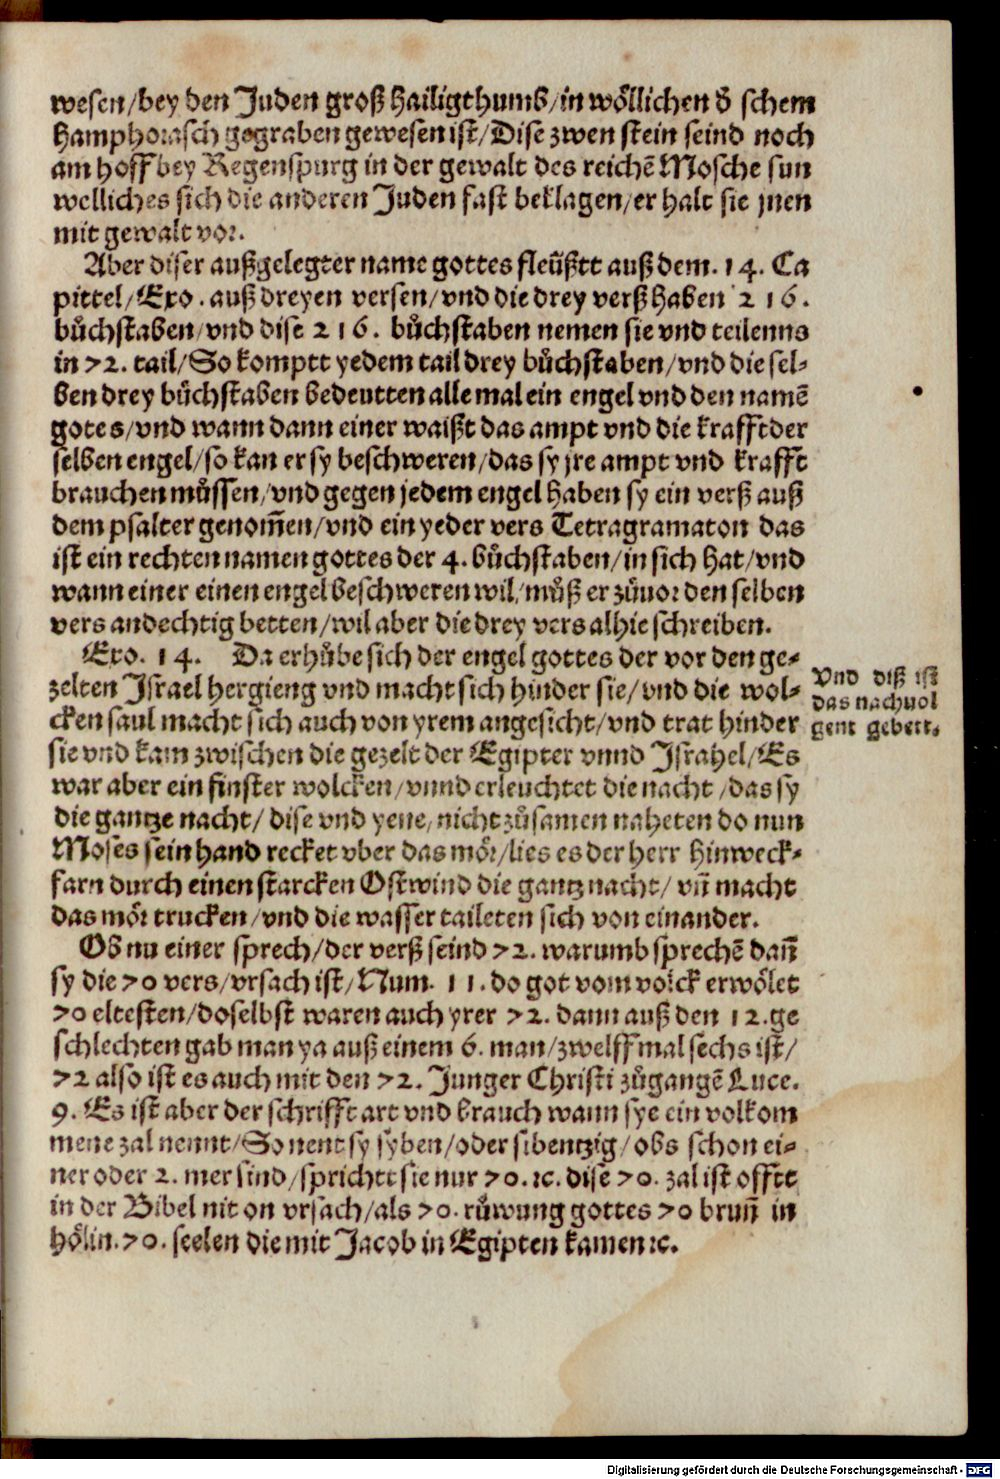 wesen/bey den Juden groß hailigthumb/in wöllichen d̄ schem
hamphorasch gegraben gewesen ist/Dise zwen stein seind noch
am hoff bey Regenspurg in der gewalt des reichē Mosche sun
welliches sich die anderen Juden fast beklagen/er halt sie jnen
mit gewalt vor.
Aber diser außgelegter name gottes fleüßtt auß dem. 14. Ca
pittel/Exo. auß dreyen versen/vnd die drey verß haben 216.
bůchstaben/vnd dise 216. bůchstaben nemen sie vnd teilenns
in 72. tail/So komptt yedem tail drey bůchstaben/vnd die sel⸗
ben drey bůchstaben bedeutten alle mal ein engel vnd den namē
gotes/vnd wann dann einer waißt das ampt vnd die krafft der
selben engel/so kan er sy beschweren/das sy jre ampt vnd krafft
brauchen můssen/vnd gegen jedem engel haben sy ein verß auß
dem psalter genom̄en/vnd ein yeder vers Tetragramaton das
ist ein rechten namen gottes der 4. bůchstaben/in sich hat/vnd
wann einer einen engel beschweren wil/můß er zůuor den selben
vers andechtig betten/wil aber die drey vers alhie schreiben.
Exo. 14. Da erhůbe sich der engel gottes der vor den ge⸗
zelten Israel hergieng vnd macht sich hinder sie/vnd die wol⸗
cken saul macht sich auch von yrem angesicht/vnd trat hinder
sie vnd kam zwischen die gezelt der Egipter vnnd Israhel/Es
war aber ein finster wolcken/vnnd erleuchtet die nacht/das sy
die gantze nacht/dise vnd yene/nicht zůsamen naheten do nun
Moses sein hand recket vber das mör/lies es der herr hinweck⸗
farn durch einen starcken Ostwind die gantz nacht/vn̄ macht
das mör trucken/vnd die wasser taileten sich von einander.
Vnd diß ist
das nachuol
gent gebett.
Ob nu einer sprech/der verß seind 72. warumb sprechē dan̄
sy die 70 vers/vrsach ist/Num. 11. do got vom volck erwölet
70 eltesten/doselbst waren auch yrer 72. dann auß den 12. ge
schlechten gab man ya auß einem 6. man/zwelff mal sechs ist/
72 also ist es auch mit den 72. Junger Christi zůgangē Luce.
9. Es ist aber der schrifft art vnd brauch wann sye ein volkom
mene zal nennt/So nent sy syben/oder sibentzig/obs schon ei⸗
ner oder 2. mer sind/sprichtt sie nur 70. ꝛc. dise 70. zal ist offtt
in der Bibel nit on vrsach/als 70. růwung gottes 70 brun̄ in
hölin. 70. seelen die mit Jacob in Egipten kamen ꝛc.
Digitalisierung gefördert durch die Deutsche Forschungsgemeinschaft - DFG